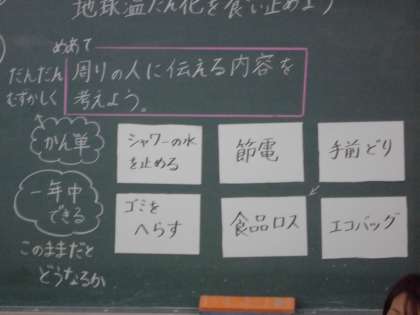 地球温だん化を食い止めよう
めあて
だんだん
むずかしく
周りの人に伝える内容を
考えよう。
かん単
シャワーの水
を止める
節電
手前どり
一年中
できる
ゴミを
へらす
食品ロス
エコバッグ
このままだと
どうなるか